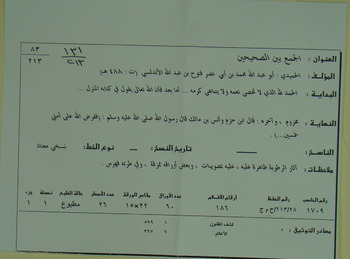 العنوان : الجمع بين الصحيحين
١٣١
١٣ت
٨٣
٢١٣
المؤلف : الحميدي ؛ أبو عبد الله محمد بن أبي نصر فتوح بن عبد الله الأندلسي (ت : ٤٨٨ هـ)
البداية : الحمد لله الذي لا تحصى نعمه ولا يتناهى كرمه ... أما بعد فإن الله تعالى يقول في كتابه المنزل ...
النهاية : مخروم ، وآخره : قال ابن حزم وأنس بن مالك قال رسول الله صلى الله عليه وسلم : (ففرض الله على أمتي خمسين...)
الناسخ : تاريخ النسخ : نوع الخط : نسخي معتاد
ملاحظات : آثار الرطوبة ظاهرة عليه ، عليه تصويبات ، وبعض أوراقه ممزقة ، وفي طرته فهرس .
رقم الحاسب رقم الحفظ أرقام الأفلام عدد الأوراق مقاس الورقة عدد الأسطر حالة الطبع نسخة جزء
١٧٠٩ ٢١٣/٢٨/ج م ج ١٨٦ ٦٠ ٢٢×١٥ ٢٦ مطبوع ١ ١
مصادر التوثيق : كشف الظنون ٥٩٩/١
الأعلام ٣٢٧/٦